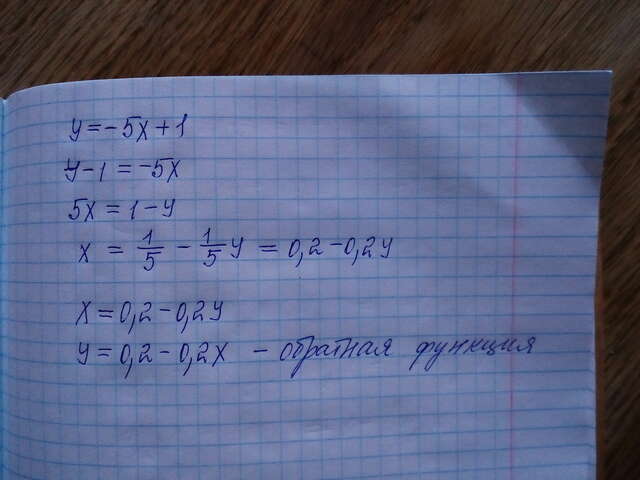 y = -5x + 1
y - 1 = -5x
5x = 1 - y
x = 1/5 - 1/5 y = 0,2 - 0,2y
x = 0,2 - 0,2y
y = 0,2 - 0,2x - обратная функция